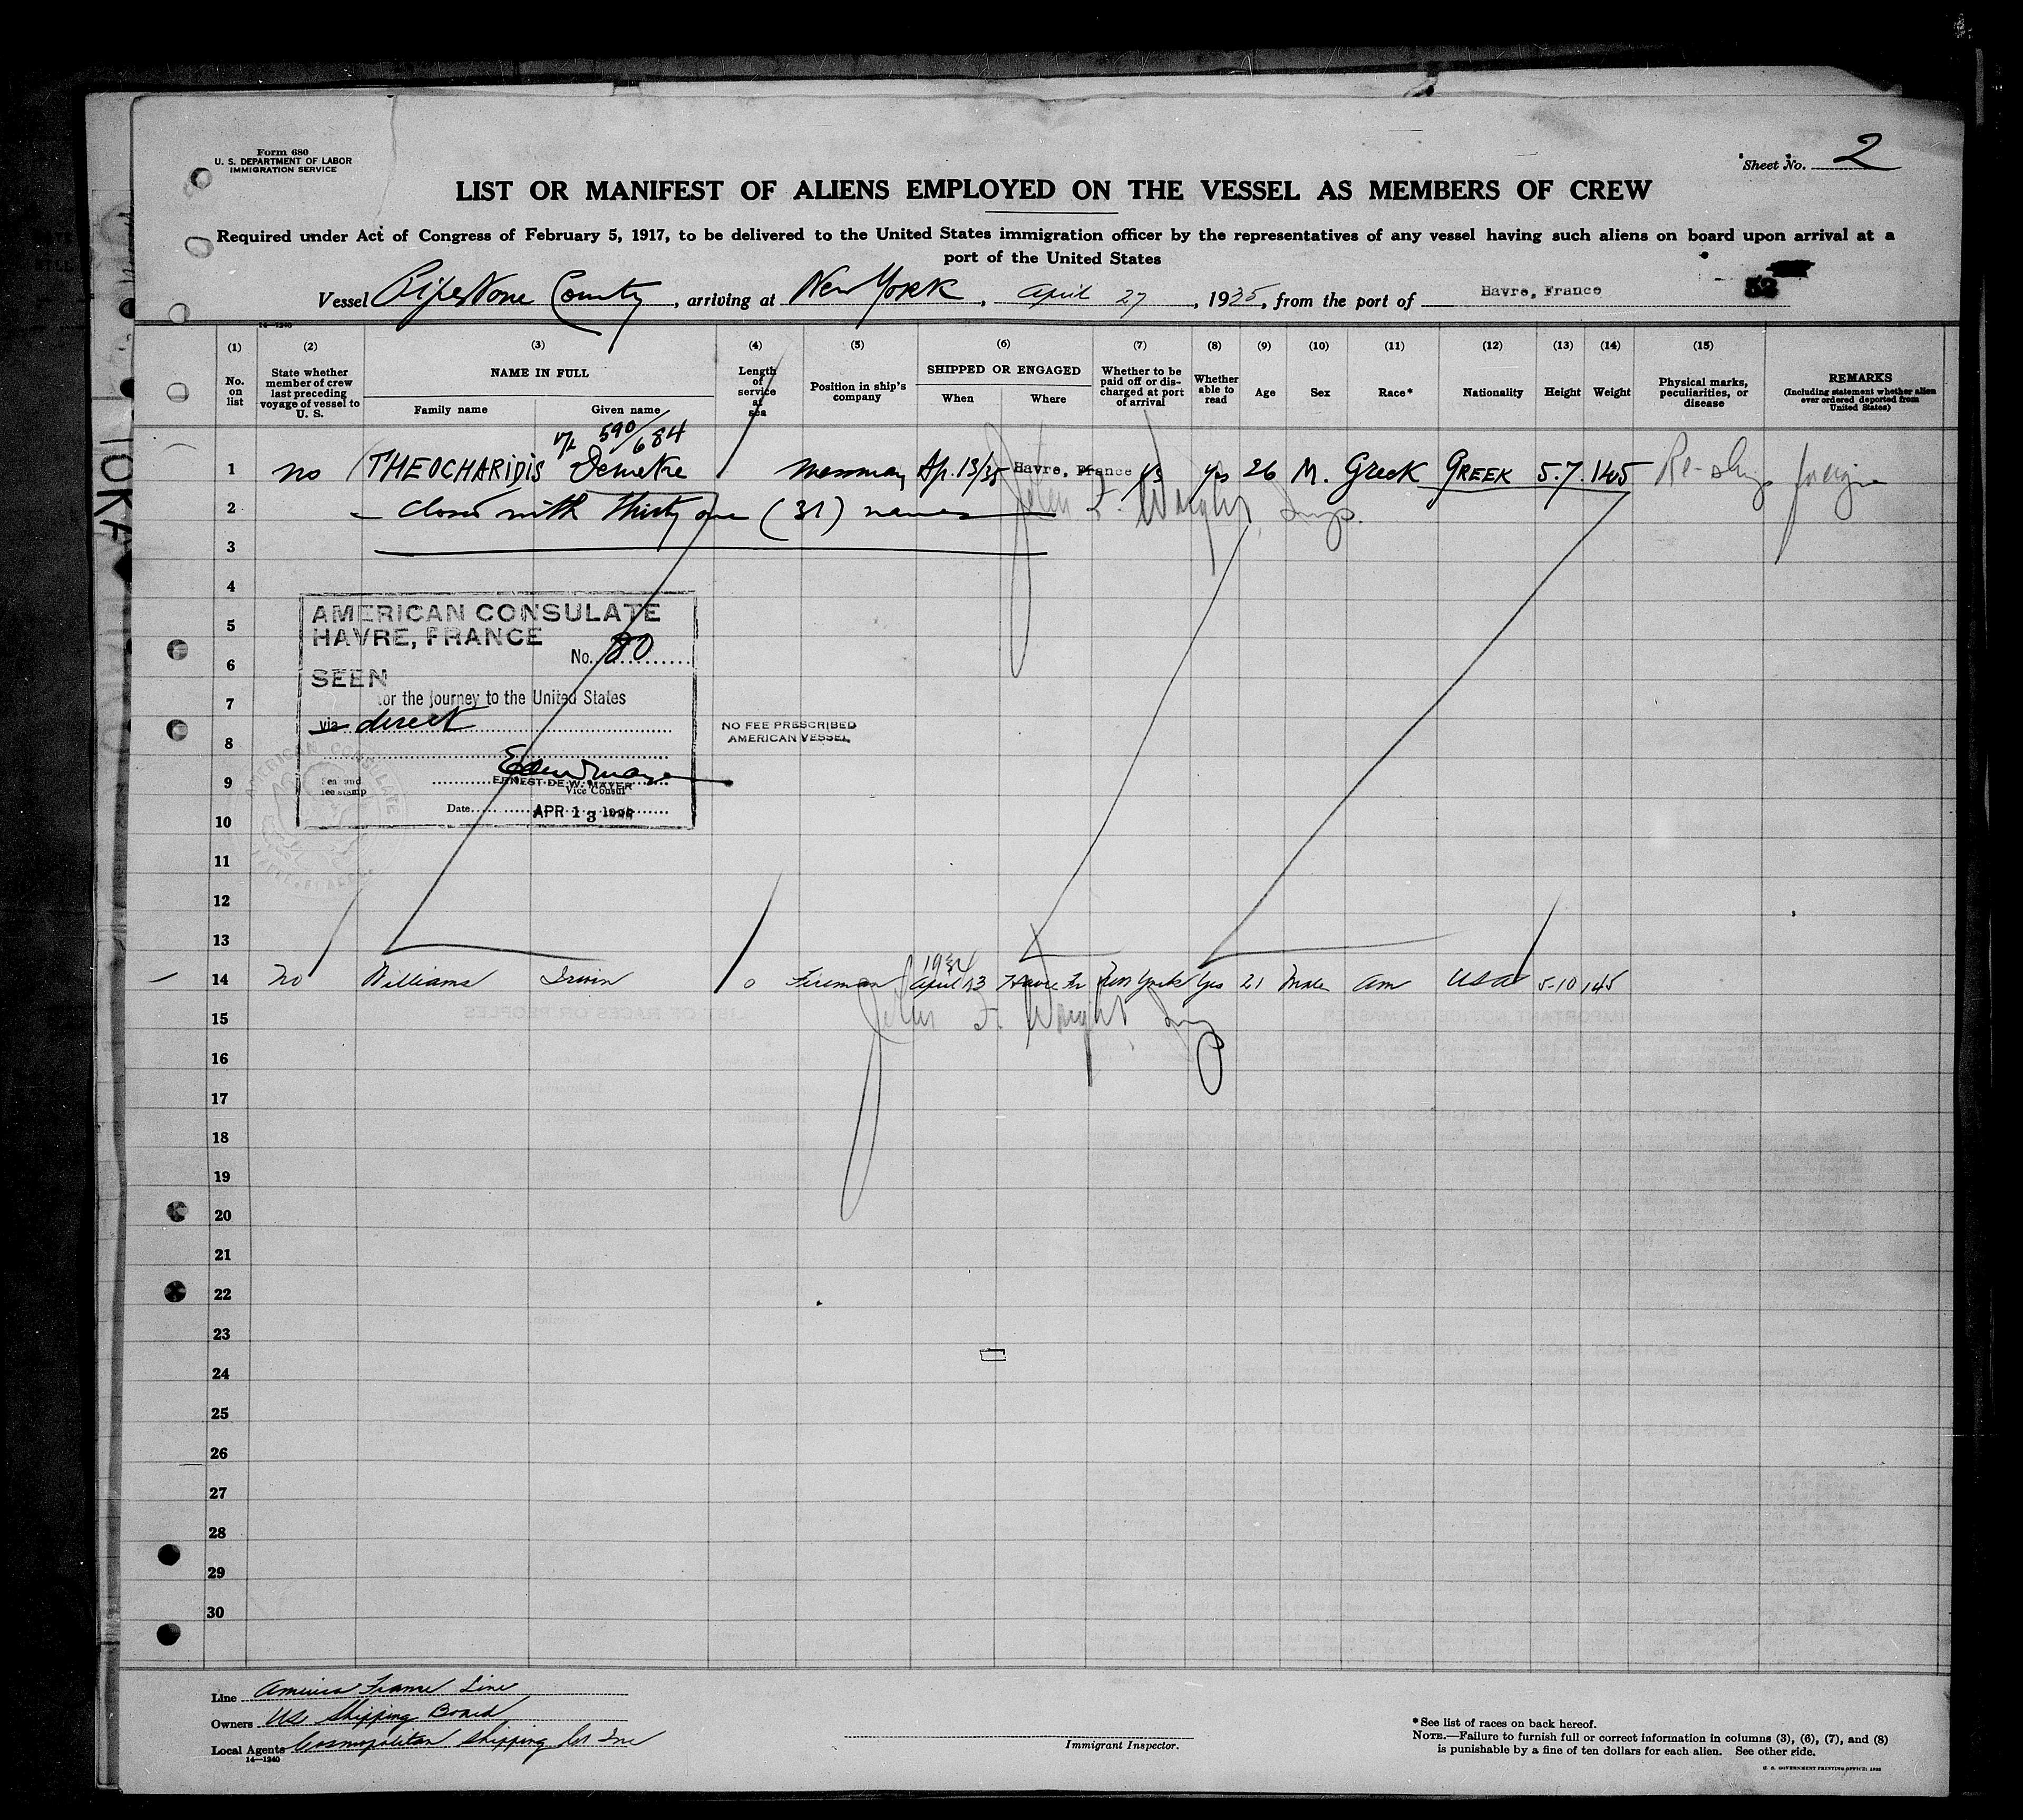 Form 680
U. S. DEPARTMENT OF LABOR
IMMIGRATION SERVICE
Sheet No. 2
LIST OR MANIFEST OF ALIENS EMPLOYED ON THE VESSEL AS MEMBERS OF CREW
Required under Act of Congress of February 5, 1917, to be delivered to the United States immigration officer by the representatives of any vessel having such aliens on board upon arrival at a
port of the United States
Vessel Pipestone County, arriving at New York, April 27, 1935, from the port of Havre, France
14—1240
(1) (2) (3) (4) (5) (6) (7) (8) (9) (10) (11) (12) (13) (14) (15)
No. on list
State whether member of crew last preceding voyage of vessel to U. S.
NAME IN FULL
Family name
Given name
Length of service at sea
Position in ship's company
SHIPPED OR ENGAGED
When
Where
Whether to be paid off or discharged at port of arrival
Whether able to read
Age
Sex
Race*
Nationality
Height
Weight
Physical marks, peculiarities, or disease
REMARKS
(Including statement whether alien ever ordered deported from United States)
590/684
1 no THEOCHARIDIS Demetre messman Ap. 13/35 Havre, France yes yes 26 M. Greek GREEK 5.7 145 Re-ship foreign
2 — Closed with Thirty one (31) names
John F. Waight Insp.
3
4
5
6
7
8
9
10
11
12
13
AMERICAN CONSULATE
HAVRE, FRANCE
No. 80
SEEN
for the journey to the United States
via direct
NO FEE PRESCRIBED
AMERICAN VESSEL
ERNEST DE W. MAYER
Vice Consul
Seal and
fee stamp
Date APR 13
AMERICAN CONSULATE
1934
14 no Williams Irwin 0 Fireman April 13 Havre Fr New York Yes 21 Male Am USA 5-10 145
John F. Waight Insp
15
16
17
18
19
20
21
22
23
24
25
26
27
28
29
30
Line America France Line
Owners US Shipping Board
Local Agents Cosmopolitan Shipping Co Inc
14—1240
Immigrant Inspector.
*See list of races on back hereof.
NOTE.—Failure to furnish full or correct information in columns (3), (6), (7), and (8)
is punishable by a fine of ten dollars for each alien. See other side.
U. S. GOVERNMENT PRINTING OFFICE: